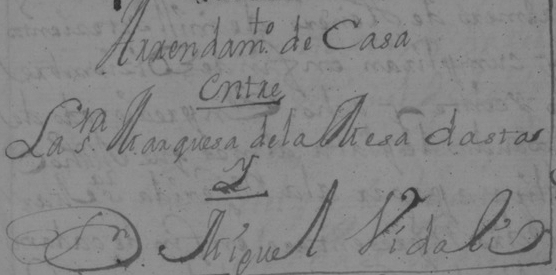 Arrendam.to de Casa
Entre
La S.ra Marquesa de la Mesa dastas
Y
D. Miguel Vidal